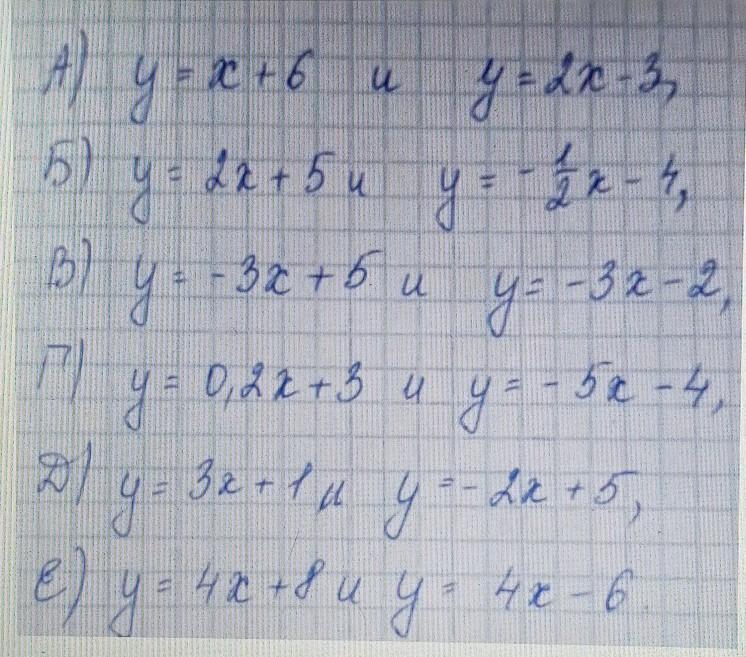 А) y = x + 6 и y = 2x - 3,
Б) y = 2x + 5 и y = - 1/2 x - 4,
В) y = -3x + 5 и y = -3x - 2,
Г) y = 0,2x + 3 и y = - 5x - 4,
Д) y = 3x + 1 и y = - 2x + 5,
Е) y = 4x + 8 и y = 4x - 6.